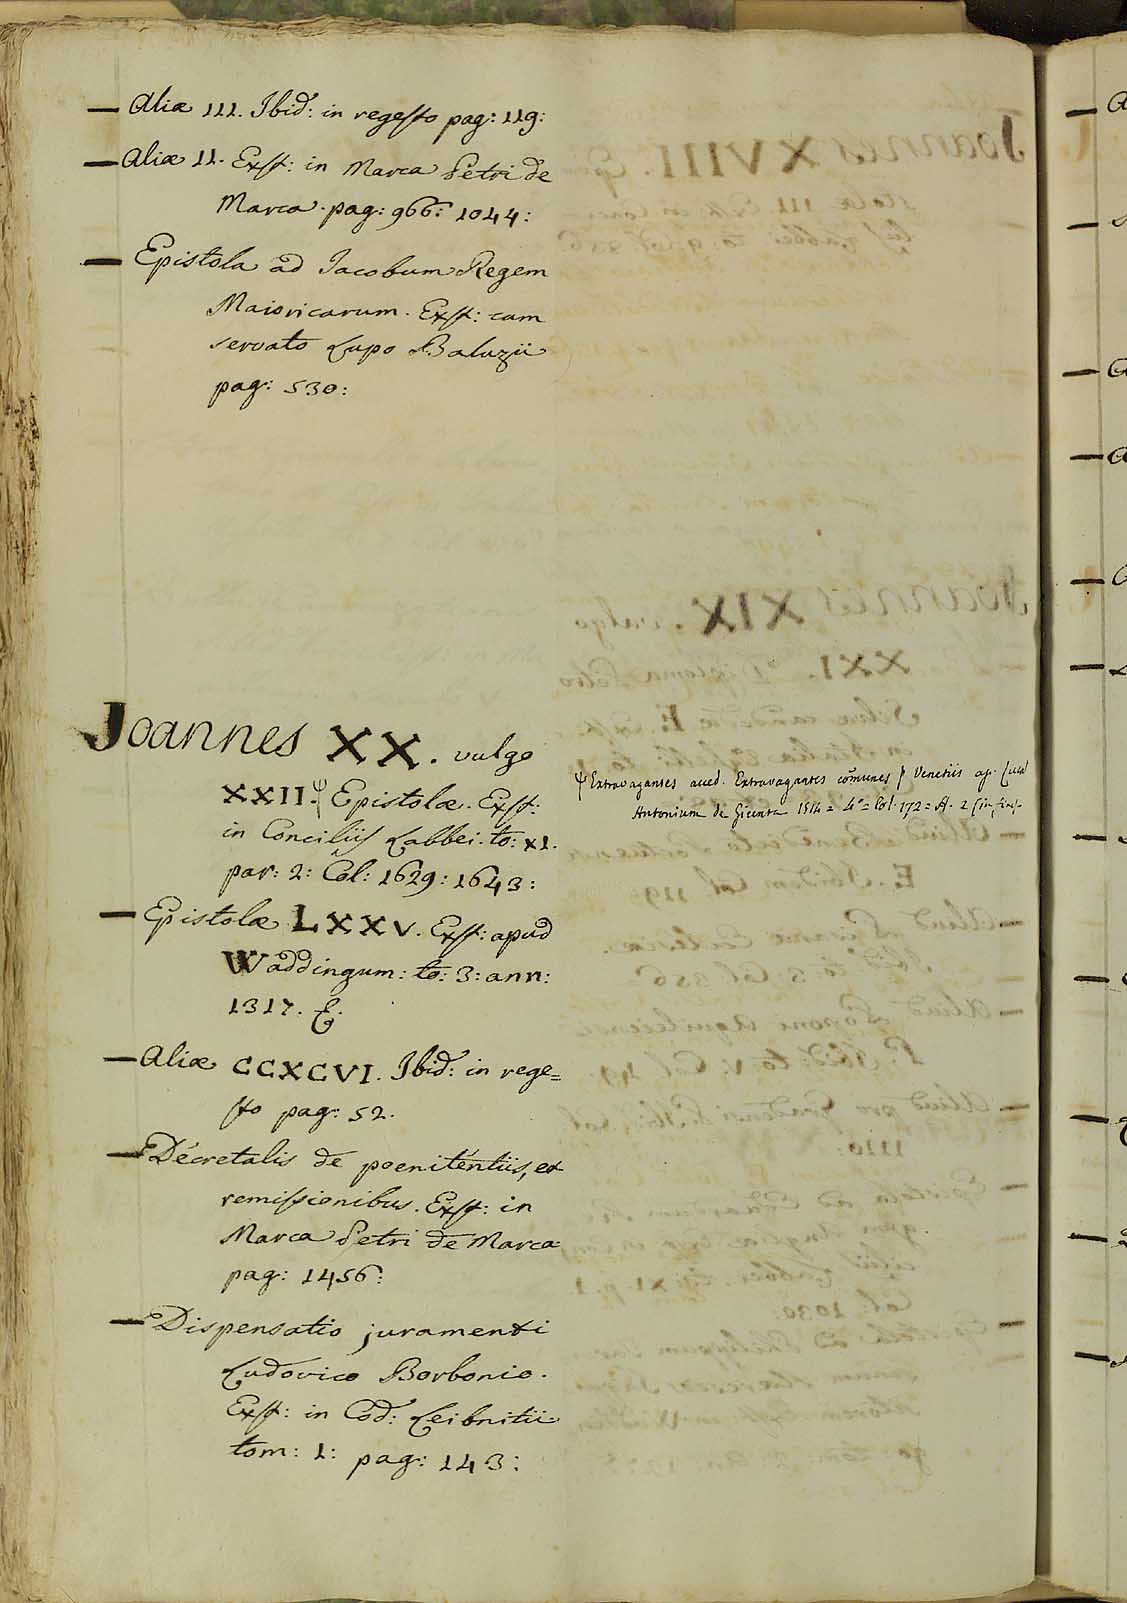 — Aliæ III. Ibid: in regesto pag: 119:
— Aliæ II. Exst: in Marca Petri de
Marca. pag: 966: 1044:
— Epistola ad Iacobum Regem
Maioricarum. Exst: cum
servato Lupo Baluzii
pag: 530:
Joannes XX. vulgo
XXII. Ψ Epistolæ. Exst:
in Conciliis Labbei. to: XI.
par: 2: Col: 1629: 1643:
Ψ Extravagantes acced. Extravagantes comunes Venetiis ap.
Antonium de Giunta 1514 = 4° = Col. 172 = A. 2
— Epistolæ LXXV. Exst: apud
Waddingum: to: 3: ann:
1317. E.
— Aliæ CCXCVI. Ibid: in rege=
sto pag: 52.
— Decretalis de poenitentiis, et
remissionibus. Exst: in
Marca Petri de Marca
pag: 1456:
— Dispensatio juramenti
Ludovico Borbonio.
Exst: in Cod: Leibnitii
tom: 1: pag: 143: